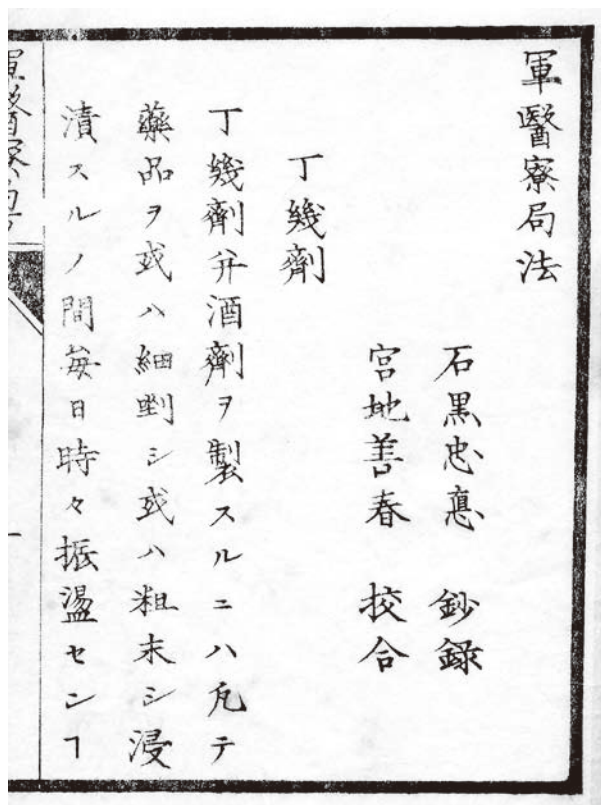 軍醫寮局法
石黒忠悳 鈔錄
宮地善春 挍合
丁幾劑
丁幾劑并酒劑ヲ製スルニハ凢テ
藥品ヲ或ハ細剉シ或ハ粗末シ浸
漬スルノ間毎日時々振盪センヿ